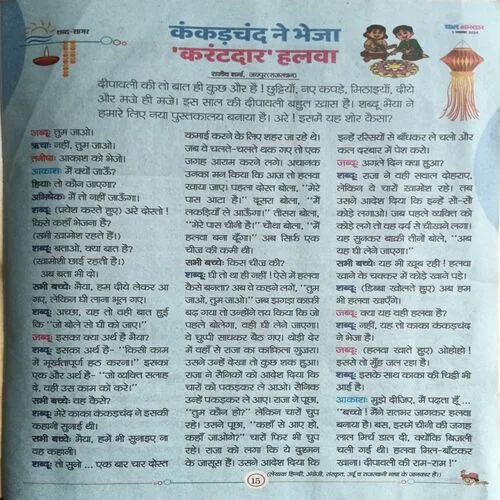 शब्द-सागर
कंकड़चंद ने भेजा
'करंटदार' हलवा
बाल भास्कर
राजीव शर्मा, जयपुर (राजस्थान)
दीपावली की तो बात ही कुछ और है! छुट्टियाँ, नए कपड़े, मिठाइयाँ, दीये
और मजे ही मजे। इस साल की दीपावली बहुत खास है। शब्दू भैया ने
हमारे लिए नया पुस्तकालय बनाया है। अरे! इसमें यह शोर कैसा?
जब्दू: तुम जाओ।
ऋचा: नहीं, तुम जाओ।
तनीषा: आकाश को भेजो।
आकाश: मैं क्यों जाऊँ?
हिया: तो कौन जाएगा?
अभिषेक: मैं तो नहीं जाऊँगा।
शब्दू: (प्रवेश करते हुए) अरे दोस्तो!
किसे कहाँ भेजना है?
(सभी खामोश रहते हैं।)
शब्दू: बताओ, क्या बात है?
(खामोशी छाई रहती है।)
अब बता भी दो।
सभी बच्चे: भैया, हम दीये लेकर आ
गए, लेकिन घी लाना भूल गए।
शब्दू: अच्छा, यह तो वही बात हुई
कि ''जो बोले सो घी को जाए।''
जब्दू: इसका क्या अर्थ है भैया?
शब्दू: इसका अर्थ है- ''किसी काम
में मूर्खतापूर्ण हठ करना।'' इसका
एक और अर्थ है- ''जो व्यक्ति सलाह
दे, वही उस काम को करे।''
सभी बच्चे: वह कैसे?
शब्दू: मेरे काका कंकड़चंद ने इसकी
कहानी सुनाई थी।
सभी बच्चे: भैया, हमें भी सुनाइए ना
वह कहानी।
शब्दू: तो सुनो ... एक बार चार दोस्त
कमाई करने के लिए शहर जा रहे थे।
जब वे चलते-चलते थक गए तो एक
जगह आराम करने लगे। अचानक
उनका मन किया कि आज तो हलवा
खाया जाए। पहला दोस्त बोला, ''मेरे
पास आटा है।'' दूसरा बोला, ''मैं
लकड़ियाँ ले आऊँगा।'' तीसरा बोला,
''मेरे पास चीनी है।'' चौथा बोला, ''मैं
हलवा बना दूँगा।'' अब सिर्फ एक
चीज की कमी थी।
सभी बच्चे: किस चीज की?
शब्दू: घी तो था ही नहीं! ऐसे में हलवा
कैसे बनता? अब वे कहने लगे, ''तुम
जाओ, तुम जाओ।'' जब झगड़ा काफी
बढ़ गया तो उन्होंने तय किया कि जो
पहले बोलेगा, वही घी लेने जाएगा।
वे चुप्पी साधकर बैठ गए। थोड़ी देर
में वहाँ से राजा का काफिला गुजरा।
उसने उन्हें देखा तो कुछ शक हुआ।
राजा ने सैनिकों को आदेश दिया कि
चारों को पकड़कर ले आओ। सैनिक
उन्हें पकड़कर ले आए। राजा ने पूछा,
''तुम कौन हो?'' लेकिन चारों चुप
रहे। उसने पूछा, ''कहाँ से आए हो,
कहाँ जाओगे?'' चारों फिर भी चुप
रहे। राजा को लगा कि ये दुश्मन
के जासूस हैं। उसने आदेश दिया कि
इन्हें रस्सियों से बाँधकर ले चलो और
कल दरबार में पेश करो।
जब्दू: अगले दिन क्या हुआ?
शब्दू: राजा ने वही सवाल दोहराए,
लेकिन वे चारों खामोश रहे। तब
उसने आदेश दिया कि इन्हें सौ-सौ
कोड़े लगाओ। जब पहले व्यक्ति को
कोड़े लगे तो वह दर्द से चीखने लगा।
यह सुनकर बाकी तीनों बोले, ''अब
यह घी लेने जाएगा।''
सभी बच्चे: यह भी खूब रही! हलवा
खाने के चक्कर में कोड़े खाने पड़े।
शब्दू: (डिब्बा खोलते हुए) अब हम
भी हलवा खाएँगे।
जब्दू: क्या यह वही हलवा है?
शब्दू: नहीं, यह तो काका कंकड़चंद
ने भेजा है।
जब्दू: (हलवा खाते हुए) ओहोहो!
इससे तो मुँह जल रहा है।
शब्दू: इसके साथ काका की चिट्ठी भी
आई है।
आकाश: मुझे दीजिए, मैं पढ़ता हूँ ...
''बच्चो! मैंने रातभर जागकर हलवा
बनाया है। बस, इसमें चीनी की जगह
लाल मिर्च डाल दी, क्योंकि बिजली
चली गई थी। हलवा मिल-बाँटकर
खाना। दीपावली की राम-राम!''
(लेखक हिन्दी, अंग्रेजी, संस्कृत, उर्दू व राजस्थानी भाषा के जानकार हैं।)
15